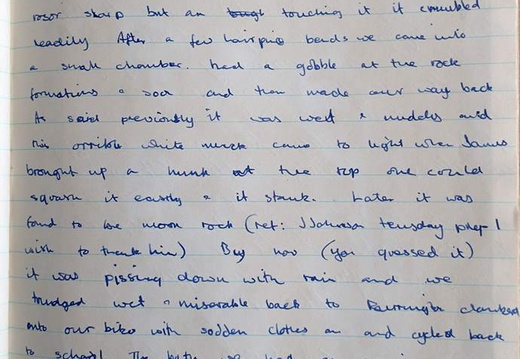 rosor sharp but on touching it it crumbled
readily After a few hairpin bends we came into
a small chamber. had a gobble at the rock
formations & soon and then made our way back
As said previously it was wet & muddy and
this orrible white muck came to light when James
brought up a hunk at the top one could
squash it easily & it stunk. Later it was
found to be moon rock (ref: J Johnson teusday prep I
wish to thank him) By now (you guessed it)
it was pissing down with rain and we
trudged wet & miserable back to Burrington
onto our bike with sodden clothes on and cycled back
to school The